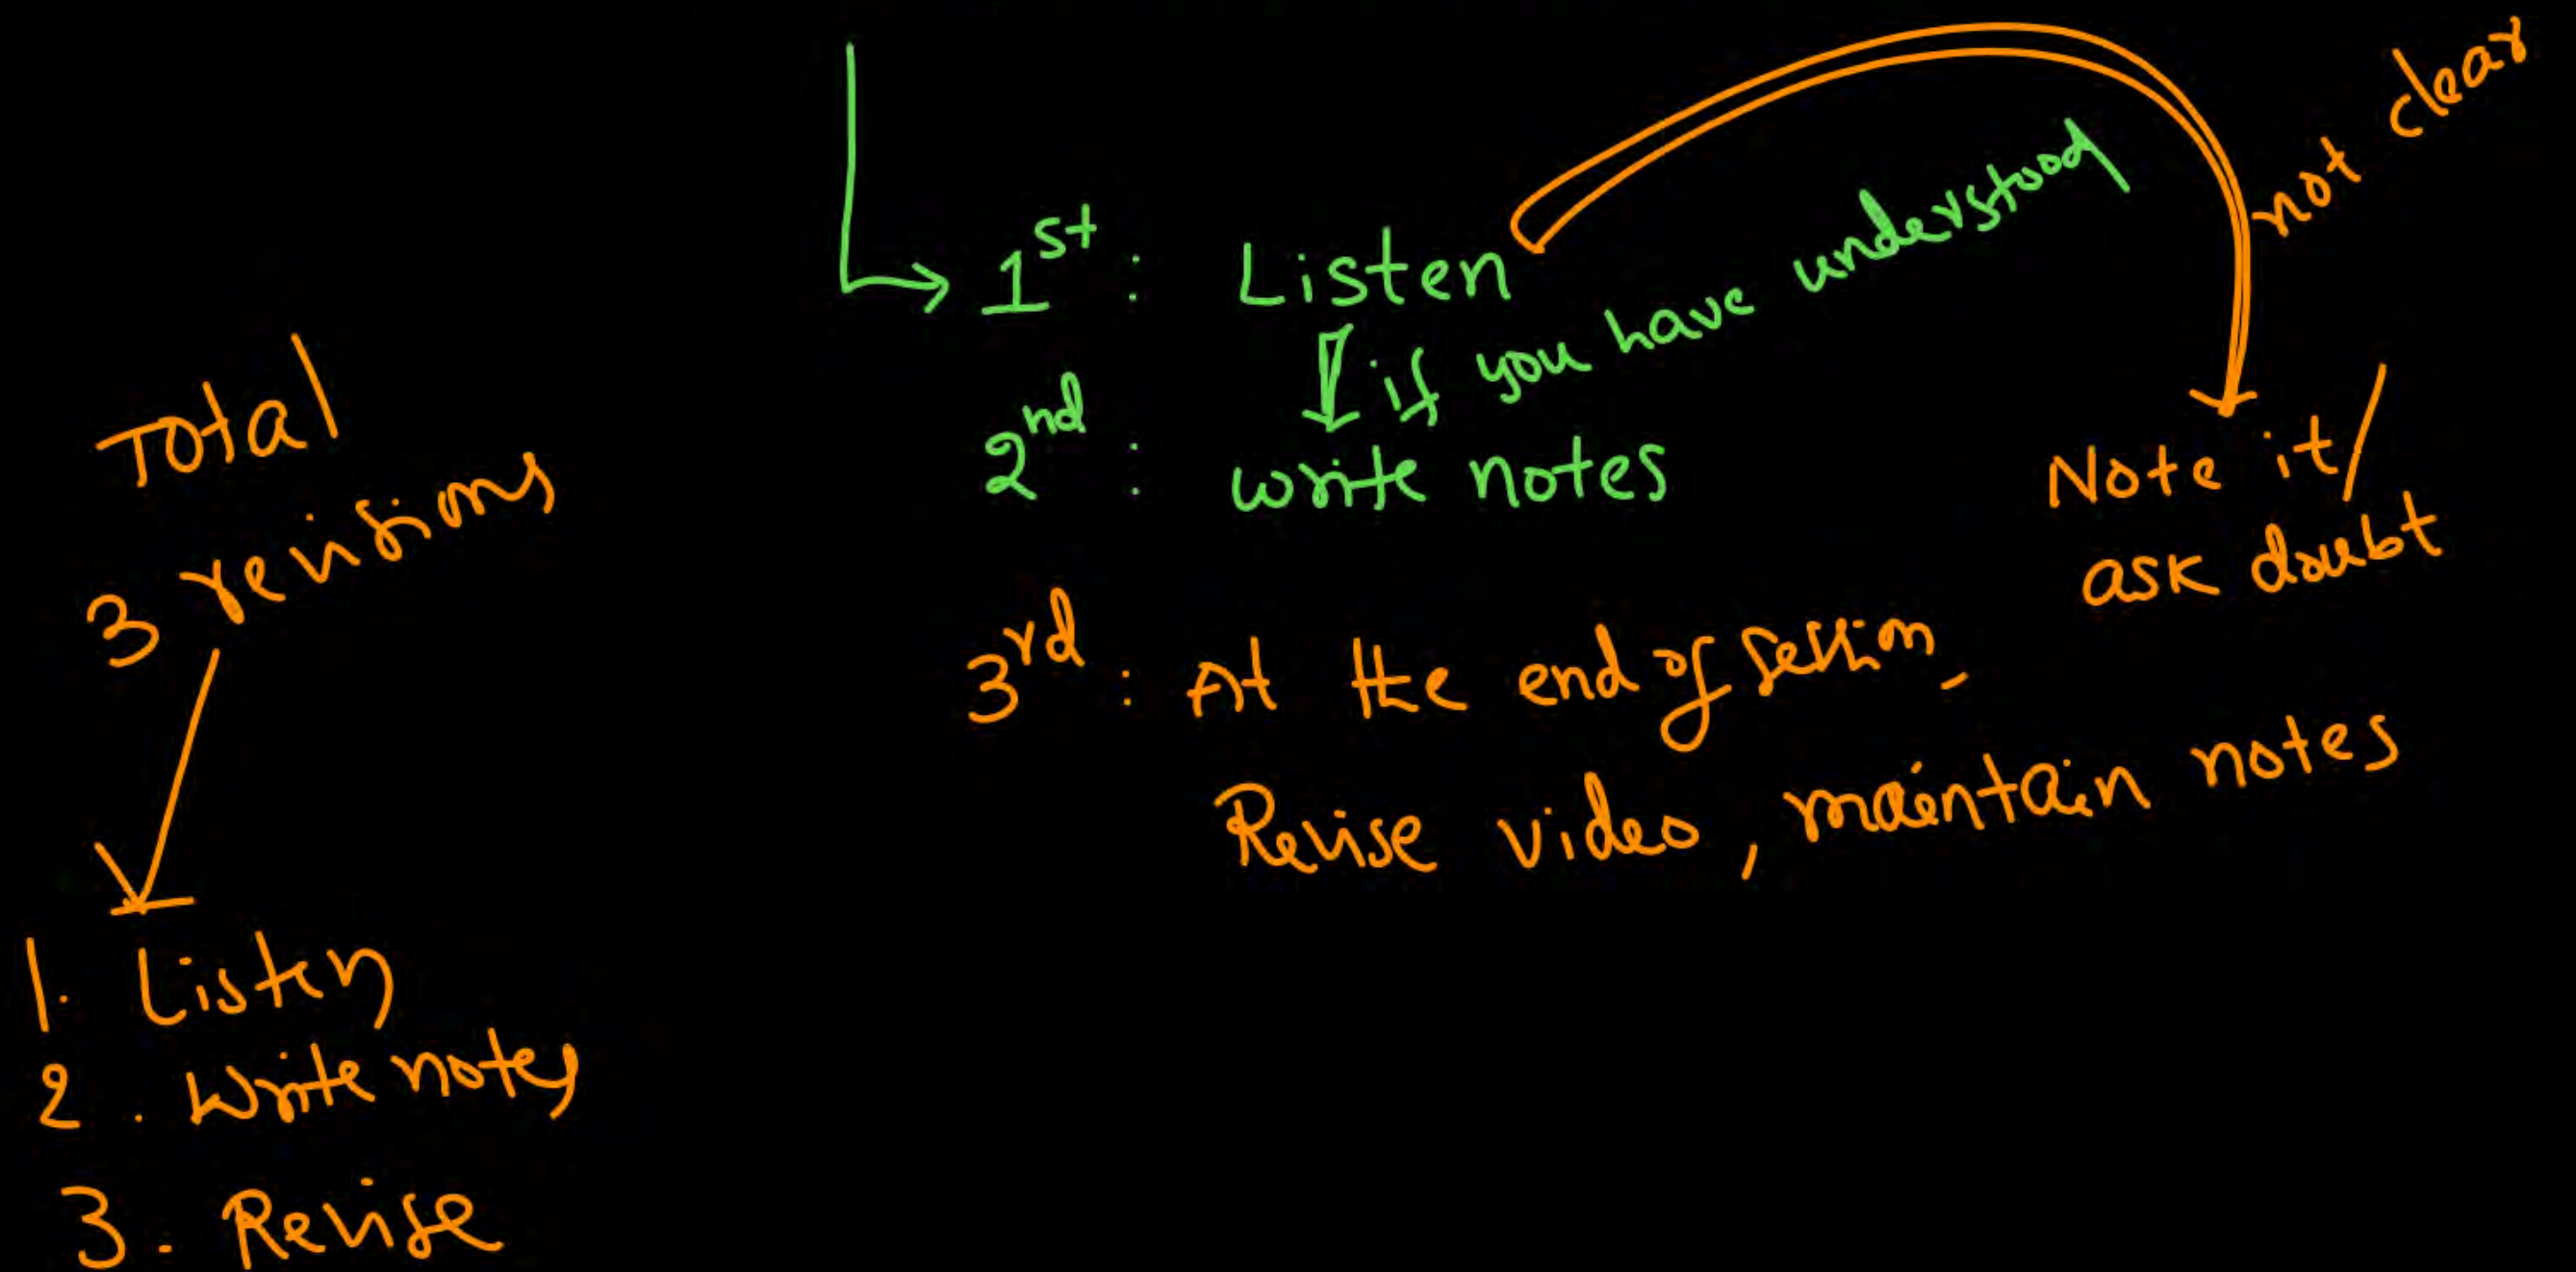 1st : Listen
if you have understood
not clear
2nd : write notes
Note it/
ask doubt
3rd : At the end of session,
Revise video, maintain notes
Total
3 revisions
1. Listen
2. Write notes
3. Revise